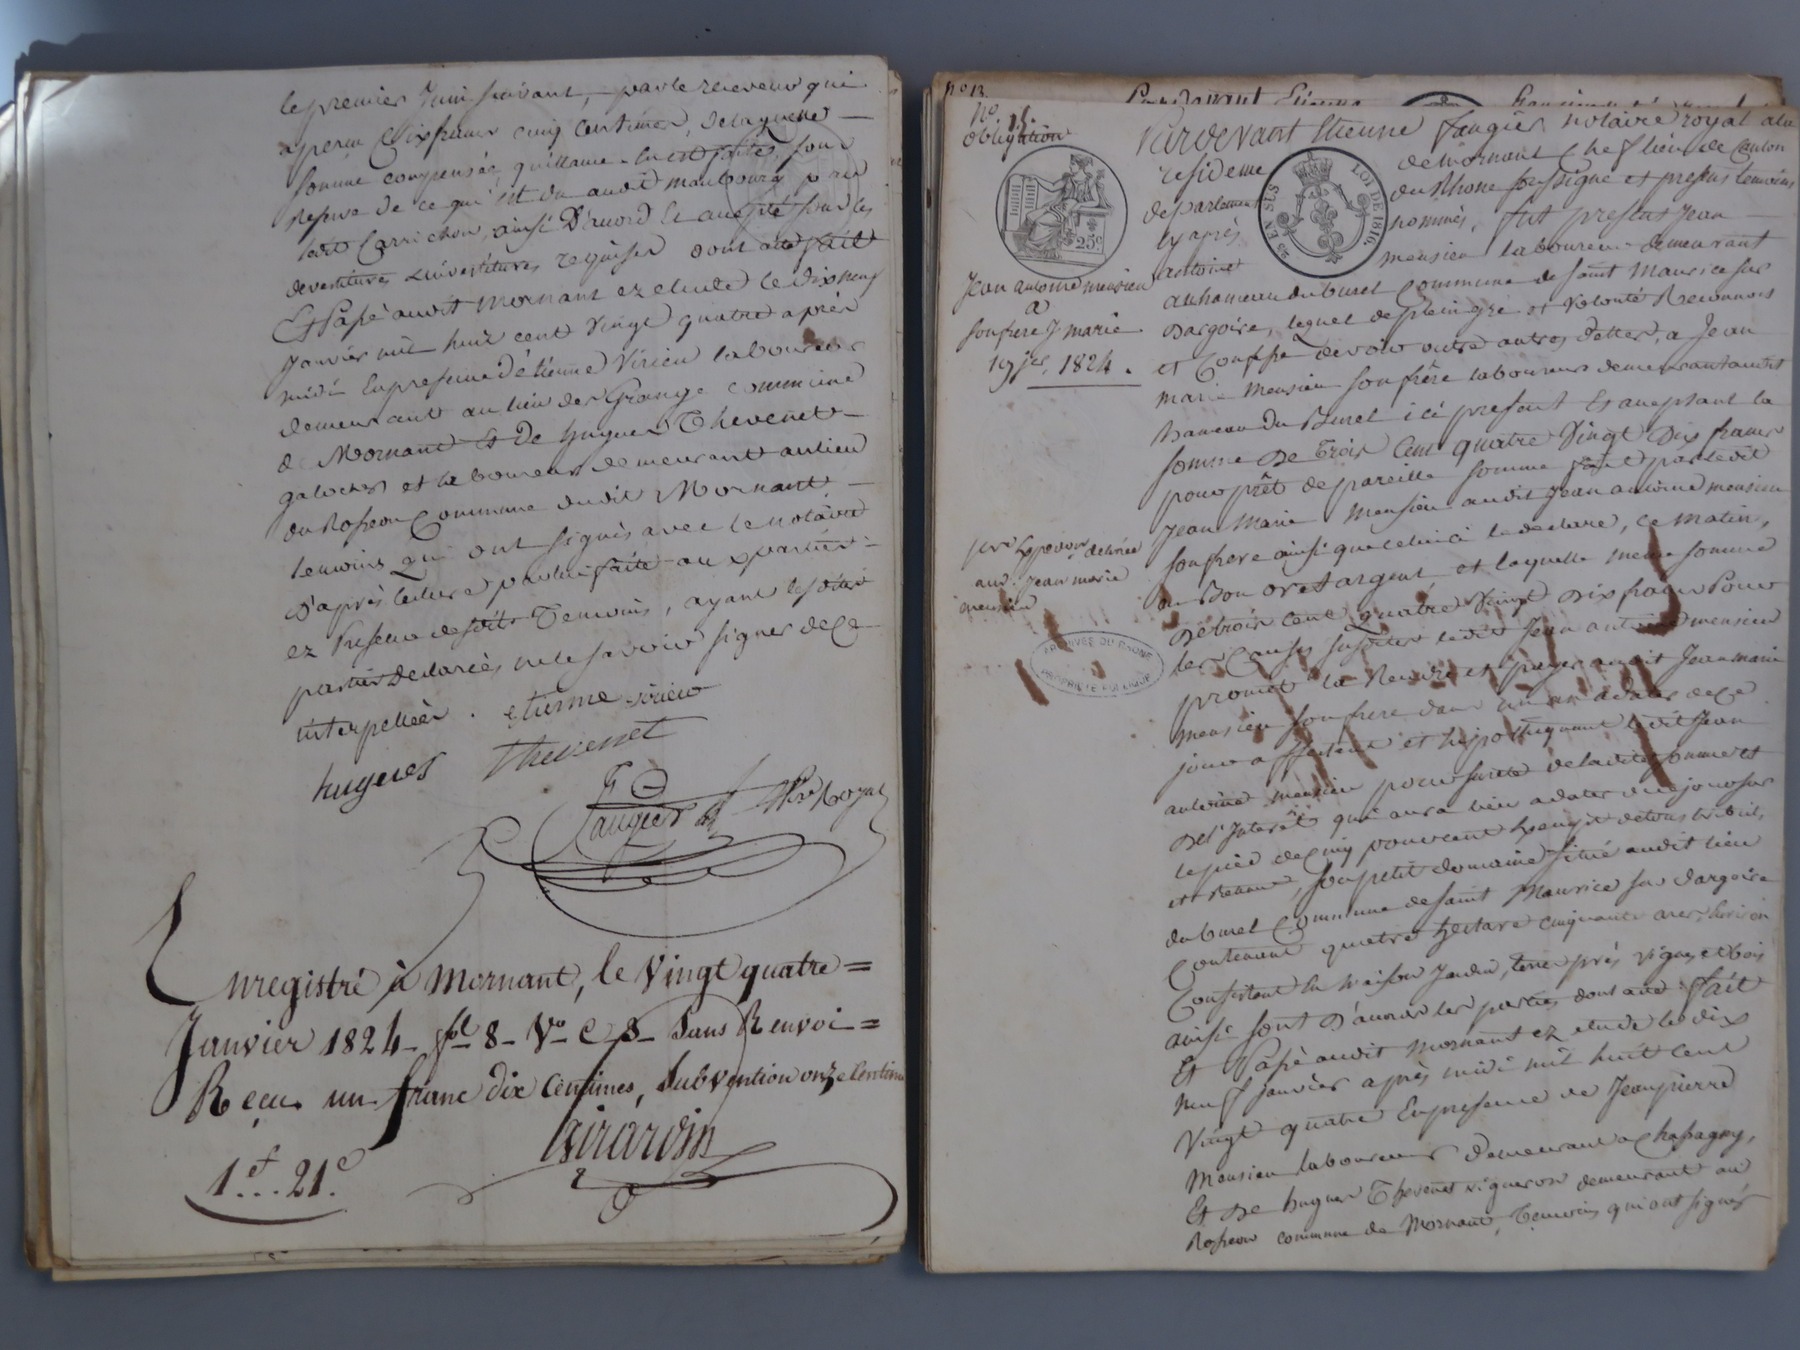 le premier Juin suivant, par le receveur qui
a perçu dix francs cinq Centimes, de laquelle
somme compensée guillaume
Reserve de ce qui est du audit maubourg par
ledit Carrichon, ainsi D'accord et accepté sous les
devestitures investitures requises dont acte fait
Et Passé audit Mornant ez etude le Dix neuf
Janvier mil huit cent Vingt quatre après
midi En presence d'étienne Virieu laboureur
demeurant au lieu des Grange commune
de Mornant Et De hugues Thevenet
galocher et laboureur demeurant au lieu
du Rosseon Commune dudit Mornant
temoins qui ont signés avec le notaire
D'après lecture par lui faite aux parties
ez Presence desdits Temoins, ayant lesdites
parties Declarées ne le savoir signer de ce
interpellées . etienne virieu
hugues thevenet
faugier Nre Royal
Enregistré à Mornant, le Vingt quatre =
Janvier 1824 - fol 8 - Vo C 8 - Sans Renvoi =
Reçu un franc dix Centimes, Subvention onze Centimes
Girardin
1f..21c.
no 13.
Pardevant Etienne
no 13.
obligation
Pardevant Etienne faugier notaire royal a la
residence de Mornant Chef lieu de Canton
departement du Rhone soussigné et presens temoins
cy après nommés, fut presens Jean
antoine mensieu laboureur demeurant
25c
2s EN SUS
LOI DE 1816.
Jean antoine mensieu
a
son frere J marie
19 jer. 1824.
au hameau du buret Commune de saint Maurice sur
Dargoire, lequel de plein gré et Volonté Reconnois
et Confesse devoir outre autres dettes, a Jean
marie Mensieu son frère laboureur demeurant audit
hameau Du Buret ici présent Et acceptant la
somme De Trois Cent quatre Vingt Dix francs
pour prêt de pareille somme fait par ledit
Jean Marie Mensieu audit Jean antoine mensieu
son frere ainsi que celui ci le declare, ce matin,
en Bon or et argent, et laquelle meme somme
De trois Cent quatre Vingt Dix francs Pour
les Causes susdites ledit Jean antoine mensieu
promet la Rendre et payer audit Jean marie
mensieu son frere dans un an a dater de Ce
jour affectant et hipothequant ledit Jean
antoine mensieu pour sureté de ladite somme et
De l'Interêt qui aura lieu a dater de ce jour sur
le pied de Cinq pour cent Exempt de tous tributs,
et Retenue, son petit domaine situé audit lieu
du buret Commune de saint Maurice sur dargoire
Contenant quatre hectare cinquante ares, Environ
Consistant En maison Jardin, terre prés vignes et bois
ainsi sont D'accord les parties dont acte fait
Et Passé audit Mornant ez etude le dix
neuf Janvier après midi mil huit cent
Vingt quatre En presence de Jean pierre
Mensieu laboureur demeurant a Chassagny,
Et De hugues Thevenet vigneron demeurant au
Rosseon commune de Mornant, Temoins qui ont signés
1ere Expedition delivrée
aud. Jean marie
mensieu
ARCHIVES DU RHONE
PROPRIETE PUBLIQUE